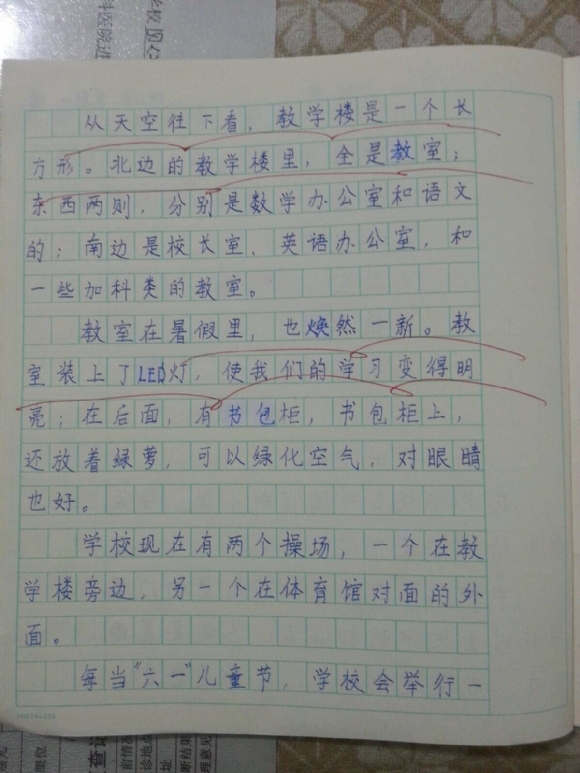 学校
科医院进
从天空往下看，教学楼是一个长
方形。北边的教学楼里，全是教室；
东西两则，分别是数学办公室和语文
的；南边是校长室、英语办公室，和
一些加科类的教室。
教室在暑假里，也焕然一新。教
室装上了LED灯，使我们的学习变得明
亮；在后面，有书包柜，书包柜上，
还放着绿萝，可以绿化空气，对眼睛
也好。
学校现在有两个操场，一个在教
学楼旁边，另一个在体育馆对面的外
面。
每当“六一”儿童节，学校会举行一